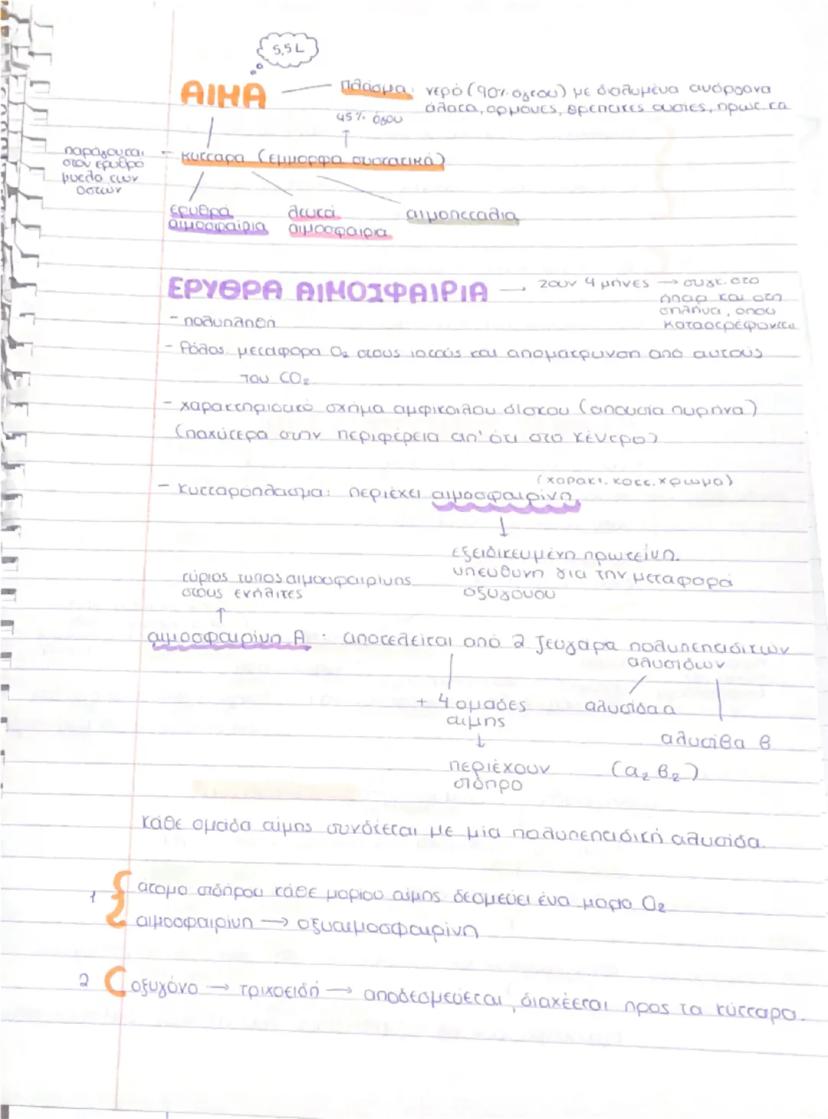 5,5L
ΑΙΜΑ — πλάσμα: νερό (90% όγκου) με διαλυμένα ανόργανα
άλατα, ορμόνες, θρεπτικές ουσίες, πρωτ. κα
45% όγου
παράγονται
στον ερυθρό
μυελό των
οστών
- κύτταρα (έμμορφα συστατικά)
ερυθρά
αιμοσφαίρια
λευκά
αιμοσφαιρια
αιμοπετάλια
ΕΡΥΘΡΑ ΑΙΜΟΣΦΑΙΡΙΑ → ζουν 4 μήνες → συγκ. στο
ήπαρ και στη
σπλήνα, όπου
καταστρέφονται
- πολυπληθή
- Ρόλος μεταφορα O₂ στους ιστούς και απομάκρυνση από αυτούς
του CO₂
- χαρακτηριστικό σχήμα αμφίκοιλου δίσκου (απουσία πυρήνα)
(παχύτερα στην περιφέρεια απ' ότι στο κέντρο)
(χαρακτ. κοκκ. χρώμα)
- κυτταρόπλασμα: περιέχει αιμοσφαιρίνη
↓
εξειδικευμένη πρωτεΐνη
υπεύθυνη για την μεταφορά
οξυγόνου
κύριος τύπος αιμοσφαιρίνης
στους ενήλικες
↑
αιμοσφαιρίνη Α: αποτελείται από 2 ζευγάρα πολυπεπτιδικών
αλυσίδων
+ 4 ομάδες
αίμης
↓
περιέχουν
σίδηρο
αλυσίδα α
αλυσίδα β
(α₂ β₂)
κάθε ομάδα αίμης συνδέεται με μία πολυπεπτιδική αλυσίδα.
1 { άτομο σιδήρου κάθε μορίου αίμης δεσμεύει ένα μόριο O₂
αιμοσφαιρίνη → οξυαιμοσφαιρίνη
2 ( οξυγόνο → τριχοειδή → αποδεσμεύεται, διαχέεται προς τα κύτταρα.